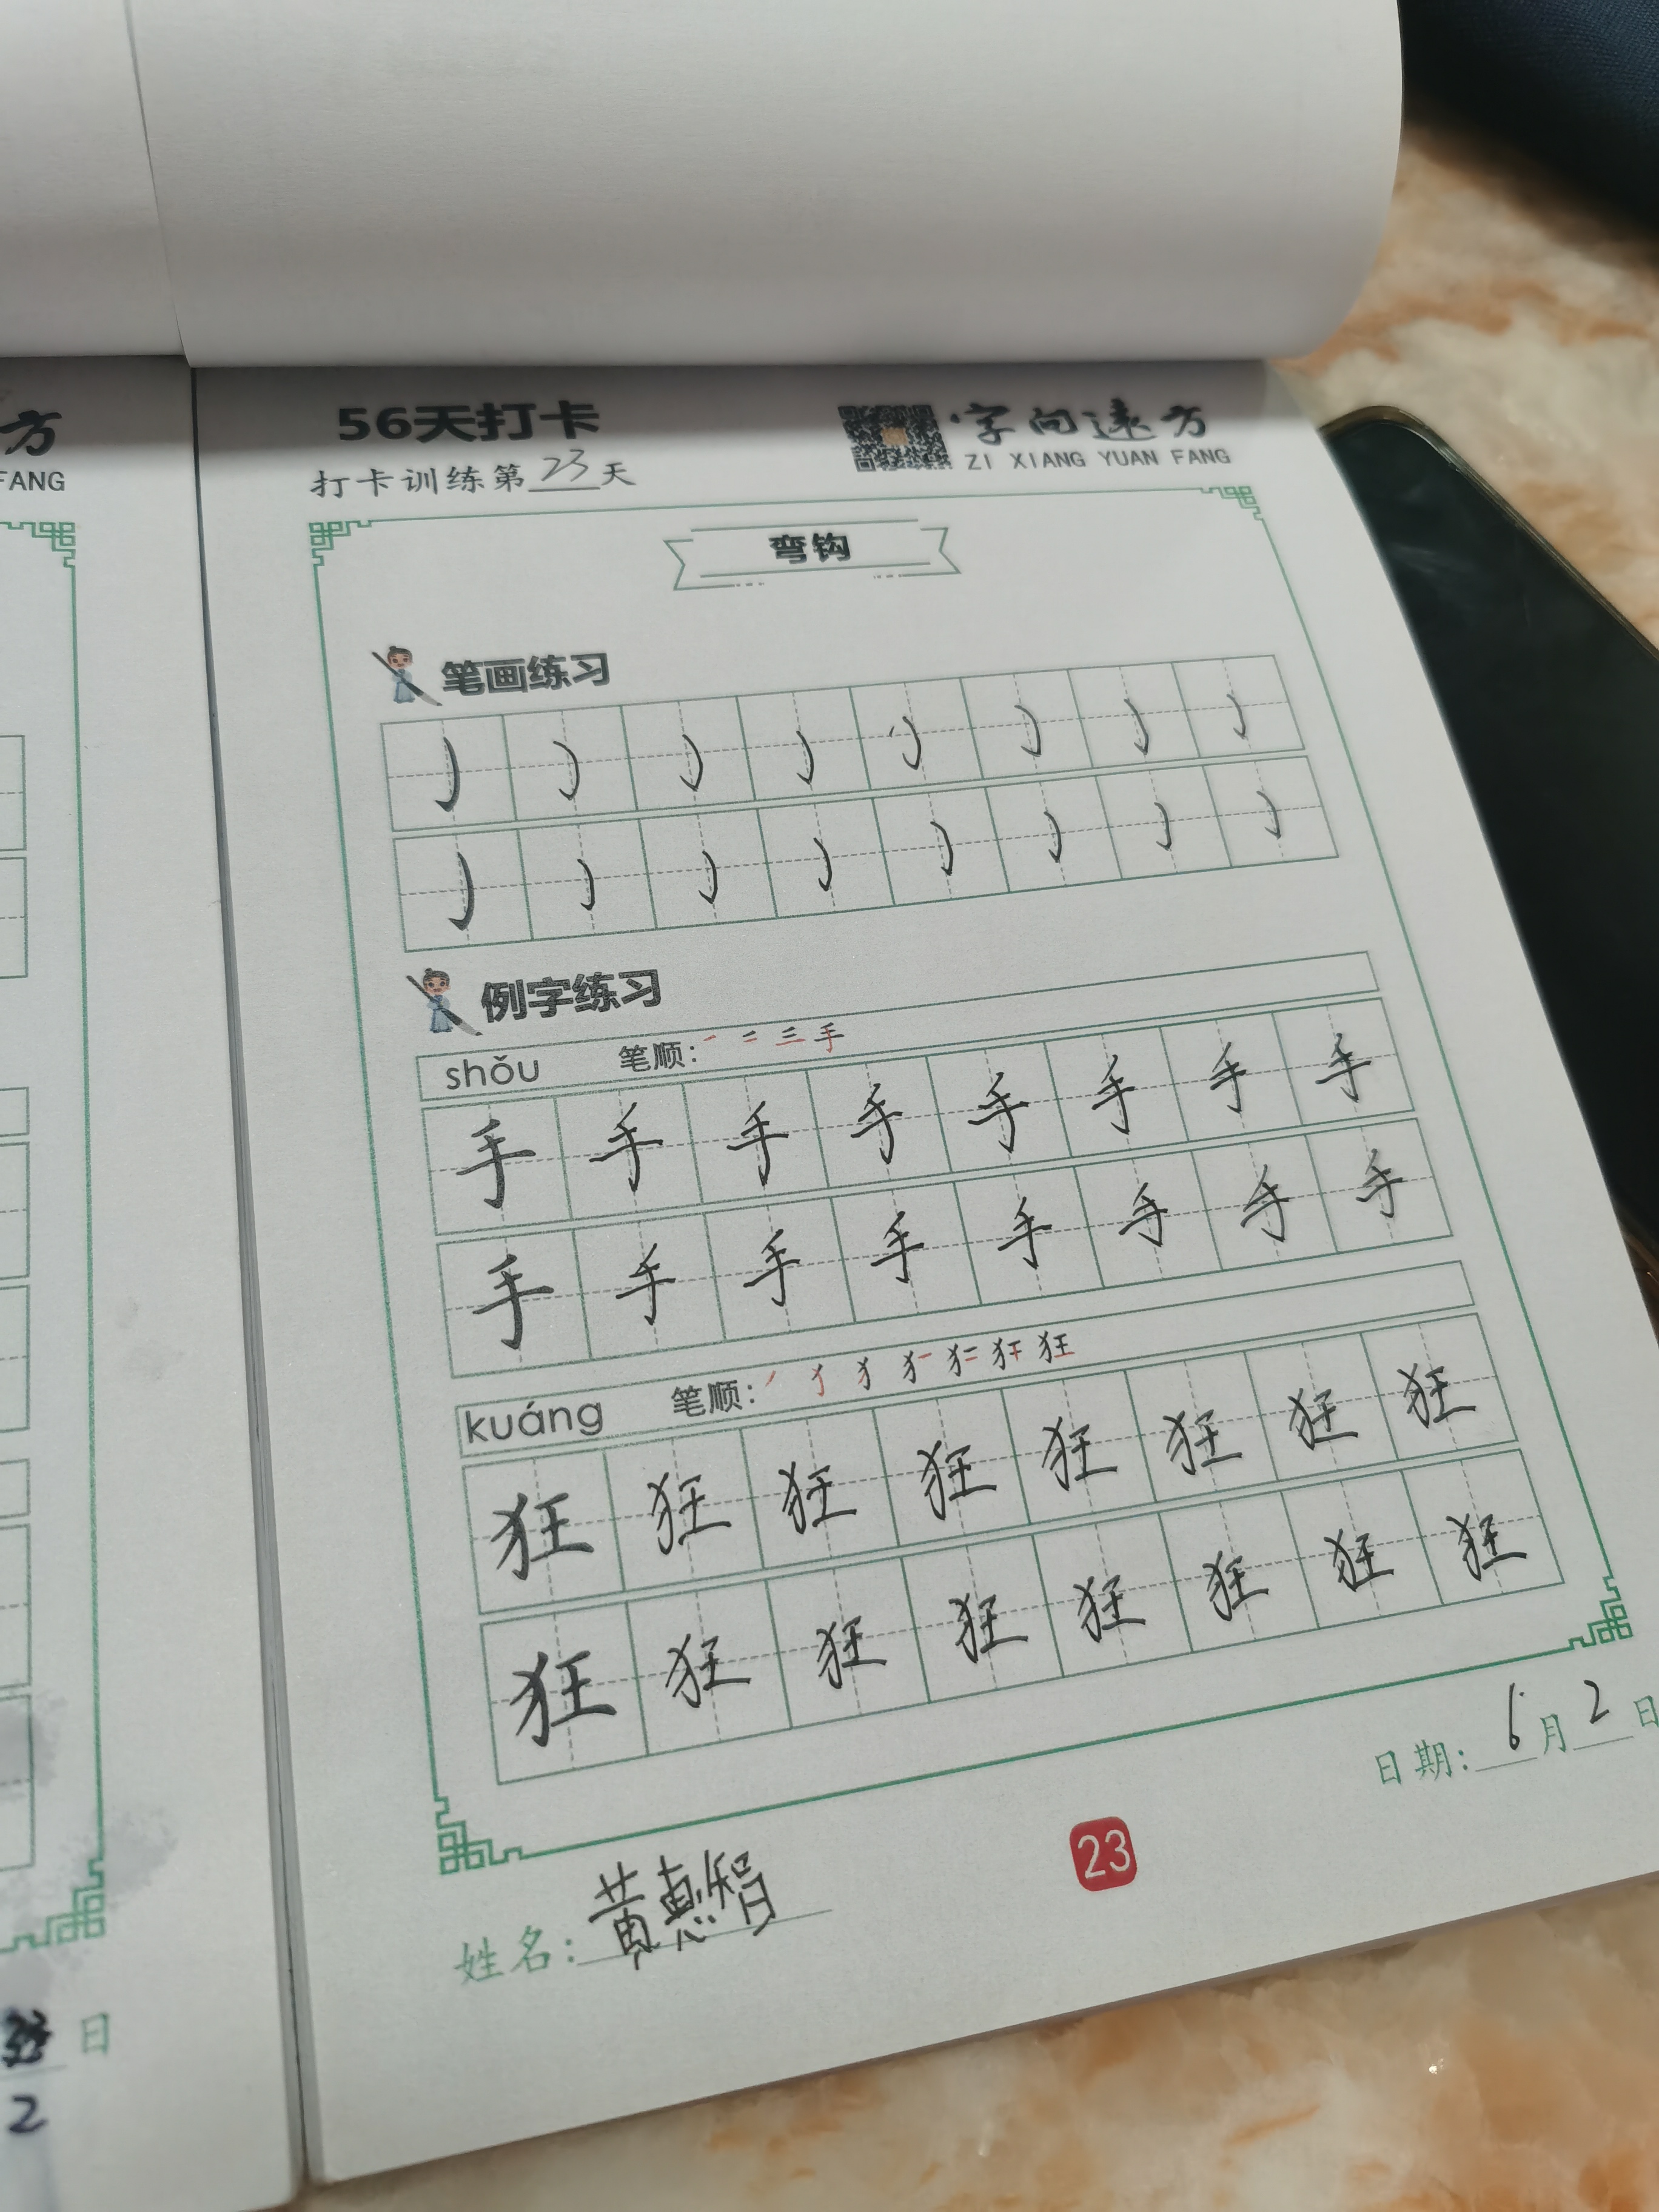 方
FANG
日
2
56天打卡
打卡训练第23天
字向远方
ZI XIANG YUAN FANG
弯钩
笔画练习
㇁㇁㇁㇁㇁㇁㇁㇁
㇁㇁㇁㇁㇁㇁㇁㇁
例字练习
shǒu 笔顺: 一 二 三 手
手手手手手手手手
手手手手手手手手
kuáng 笔顺: 狂
狂狂狂狂狂狂狂狂
狂狂狂狂狂狂狂狂
日期: 6月2日
23
姓名: 黄惠娟